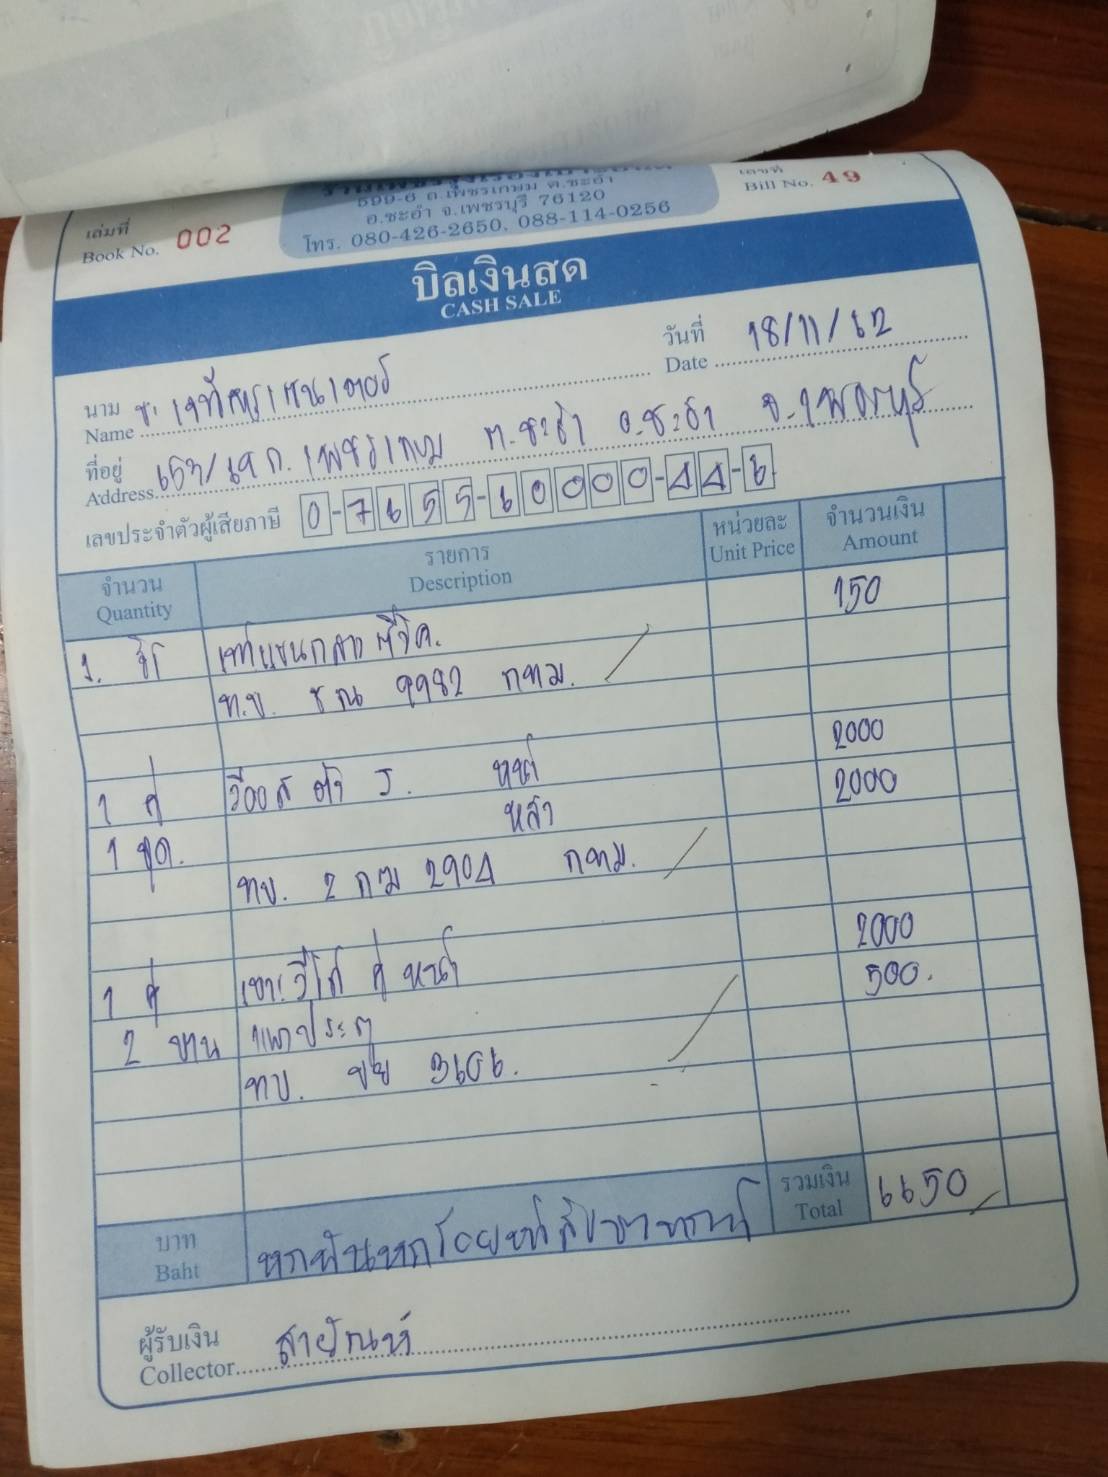 599-6 ถ.เพชรเกษม ต.ชะอำ
อ.ชะอำ จ.เพชรบุรี 76120
โทร. 080-426-2650, 088-114-0256
เล่มที่
Book No. 002
เลขที่
Bill No. 49
บิลเงินสด
CASH SALE
วันที่
Date 18/11/62
นาม
Name
ที่อยู่ ถ.เพชรเกษม ต.ชะอำ อ.ชะอำ จ.เพชรบุรี
Address
เลขประจำตัวผู้เสียภาษี 0-7655-60000-44-6
จำนวน รายการ หน่วยละ จำนวนเงิน
Quantity Description Unit Price Amount
150
1.
ท.บ. ชณ 9982 กทม.
1 คู่ หน้า 2000
1 ชุด. หลัง 2000
ทบ. 2 กฒ 2904 กทม.
1 คู่ คู่ หน้า 2000
2 บาน ประตู 500.
ทบ. 3606.
บาท หกพันหกร้อยห้าสิบบาทถ้วน รวมเงิน 6650
Baht Total
ผู้รับเงิน สายัณห์
Collector